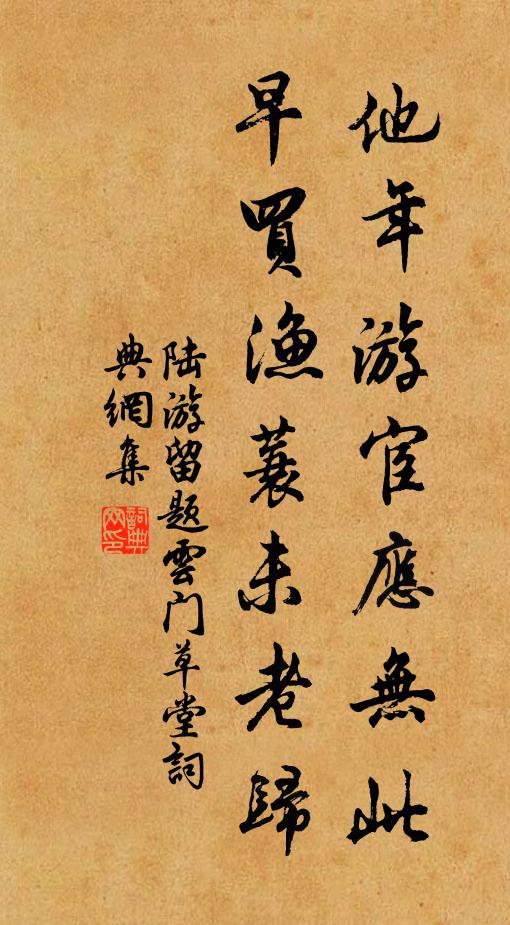 他年游宦應無此
早買漁蓑未老歸
陆游留題雲门草堂詞
典網集
詞典網印